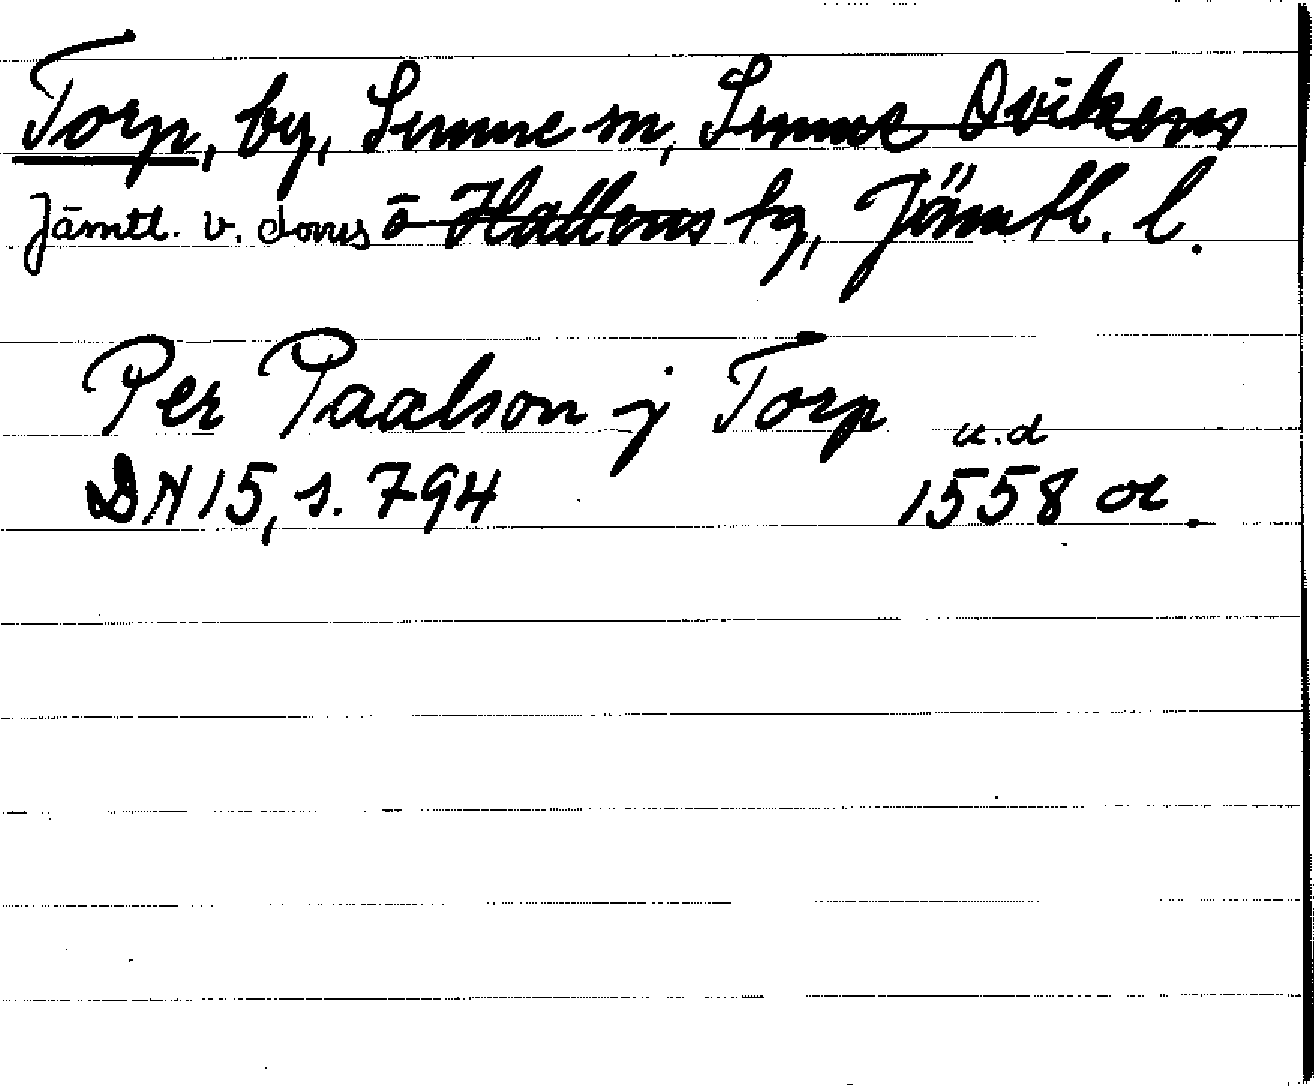 Torp, by, Sunne sn, Sunne Ovikens
Jämtl. v. doms o Hallens tg, Jämtl. l.
Per Paalson j Torp
u.d
DN 15, s. 794 1558 or.